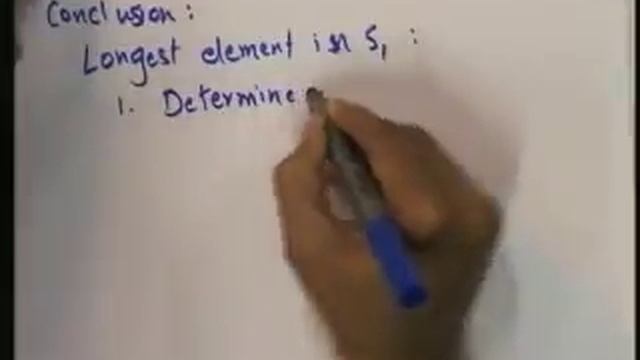 Conclusion:
Longest element in S, :
1. Determine